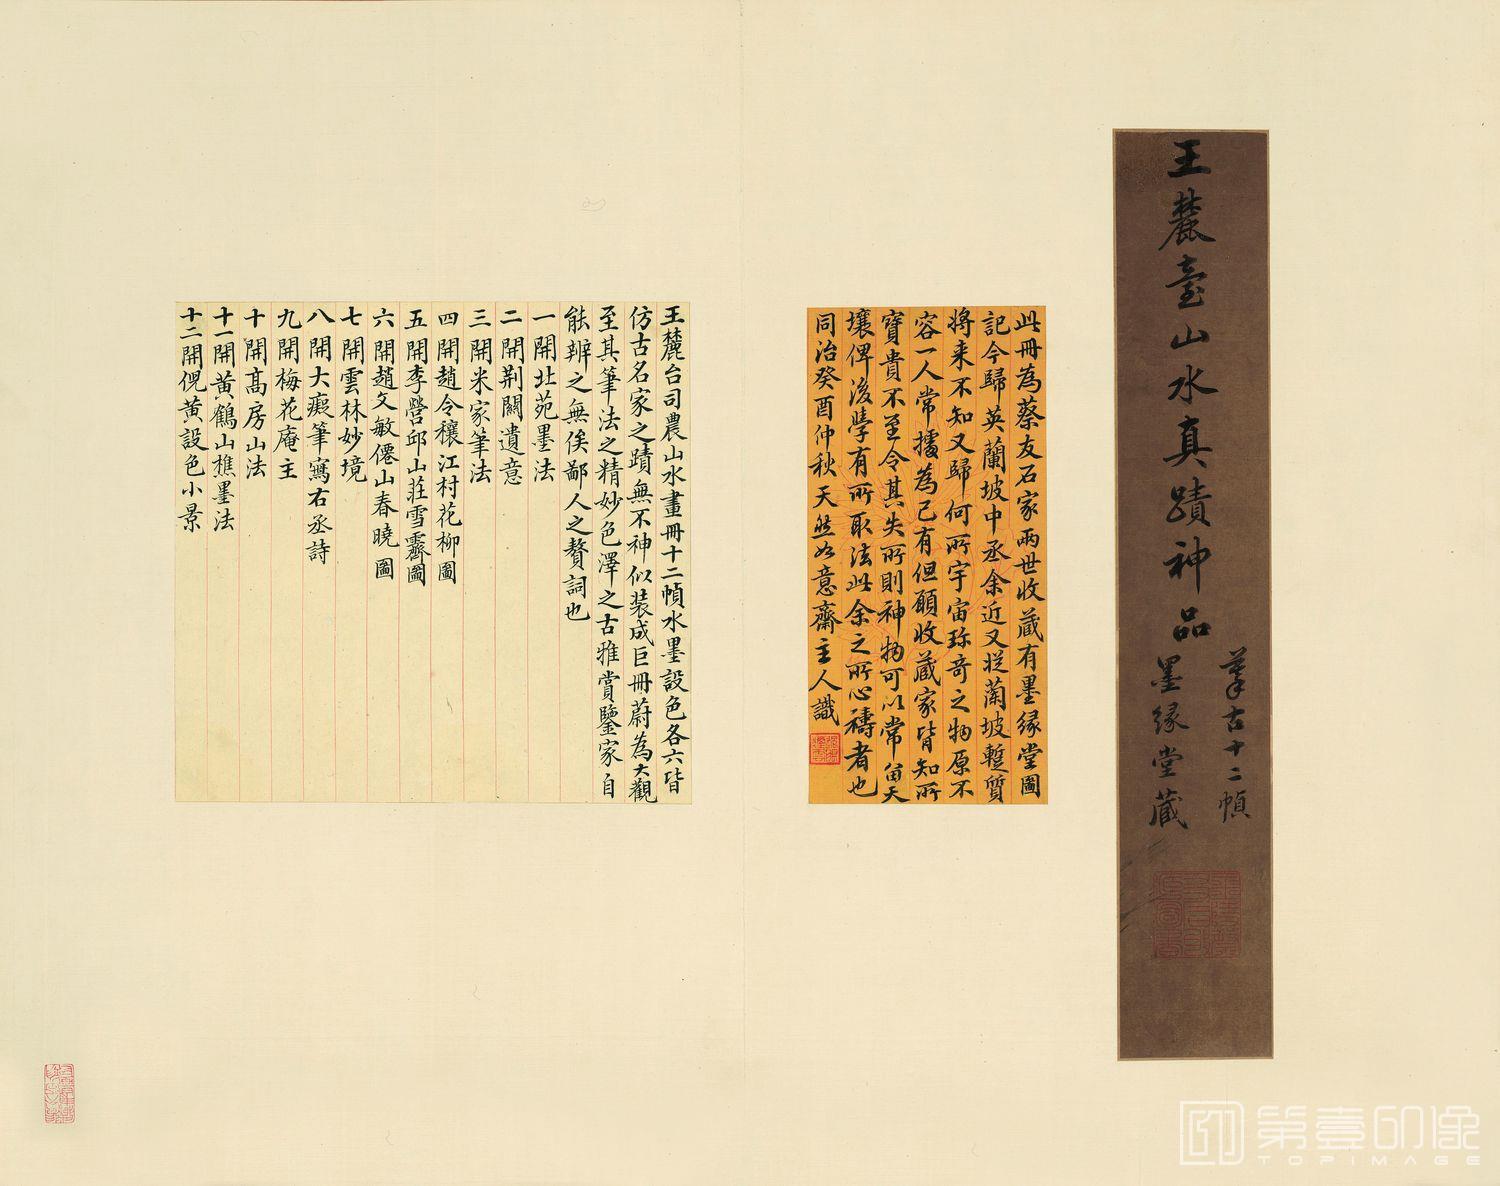 王麓臺山水真蹟神品
摹古十二幀
墨緣堂藏
此冊為蔡友石家兩世收藏有墨緣堂圖
記今歸英蘭坡中丞余近又從蘭坡蹔質
將來不知又歸何所宇宙珎奇之物原不
容一人常擅為己有但願收藏家皆知所
寶貴不至令其失所則神物可以常留天
壤俾後學有所取法此余之所心禱者也
同治癸酉仲秋天然如意齋主人識
王麓台司農山水畫冊十二幀水墨設色各六皆
仿古名家之蹟無不神似裝成巨冊蔚為大觀
至其筆法之精妙色澤之古雅賞鑒家自
能辦之無俟鄙人之贅詞也
一開北苑墨法
二開荆關遺意
三開米家筆法
四開趙令穰江村花柳圖
五開李營邱山莊雪霽圖
六開趙文敏僊山春曉圖
七開雲林妙境
八開大癡筆寫右丞詩
九開梅花庵主
十開高房山法
十一開黃鶴山樵墨法
十二開倪黃設色小景
第壹印像
TOPIMAGE